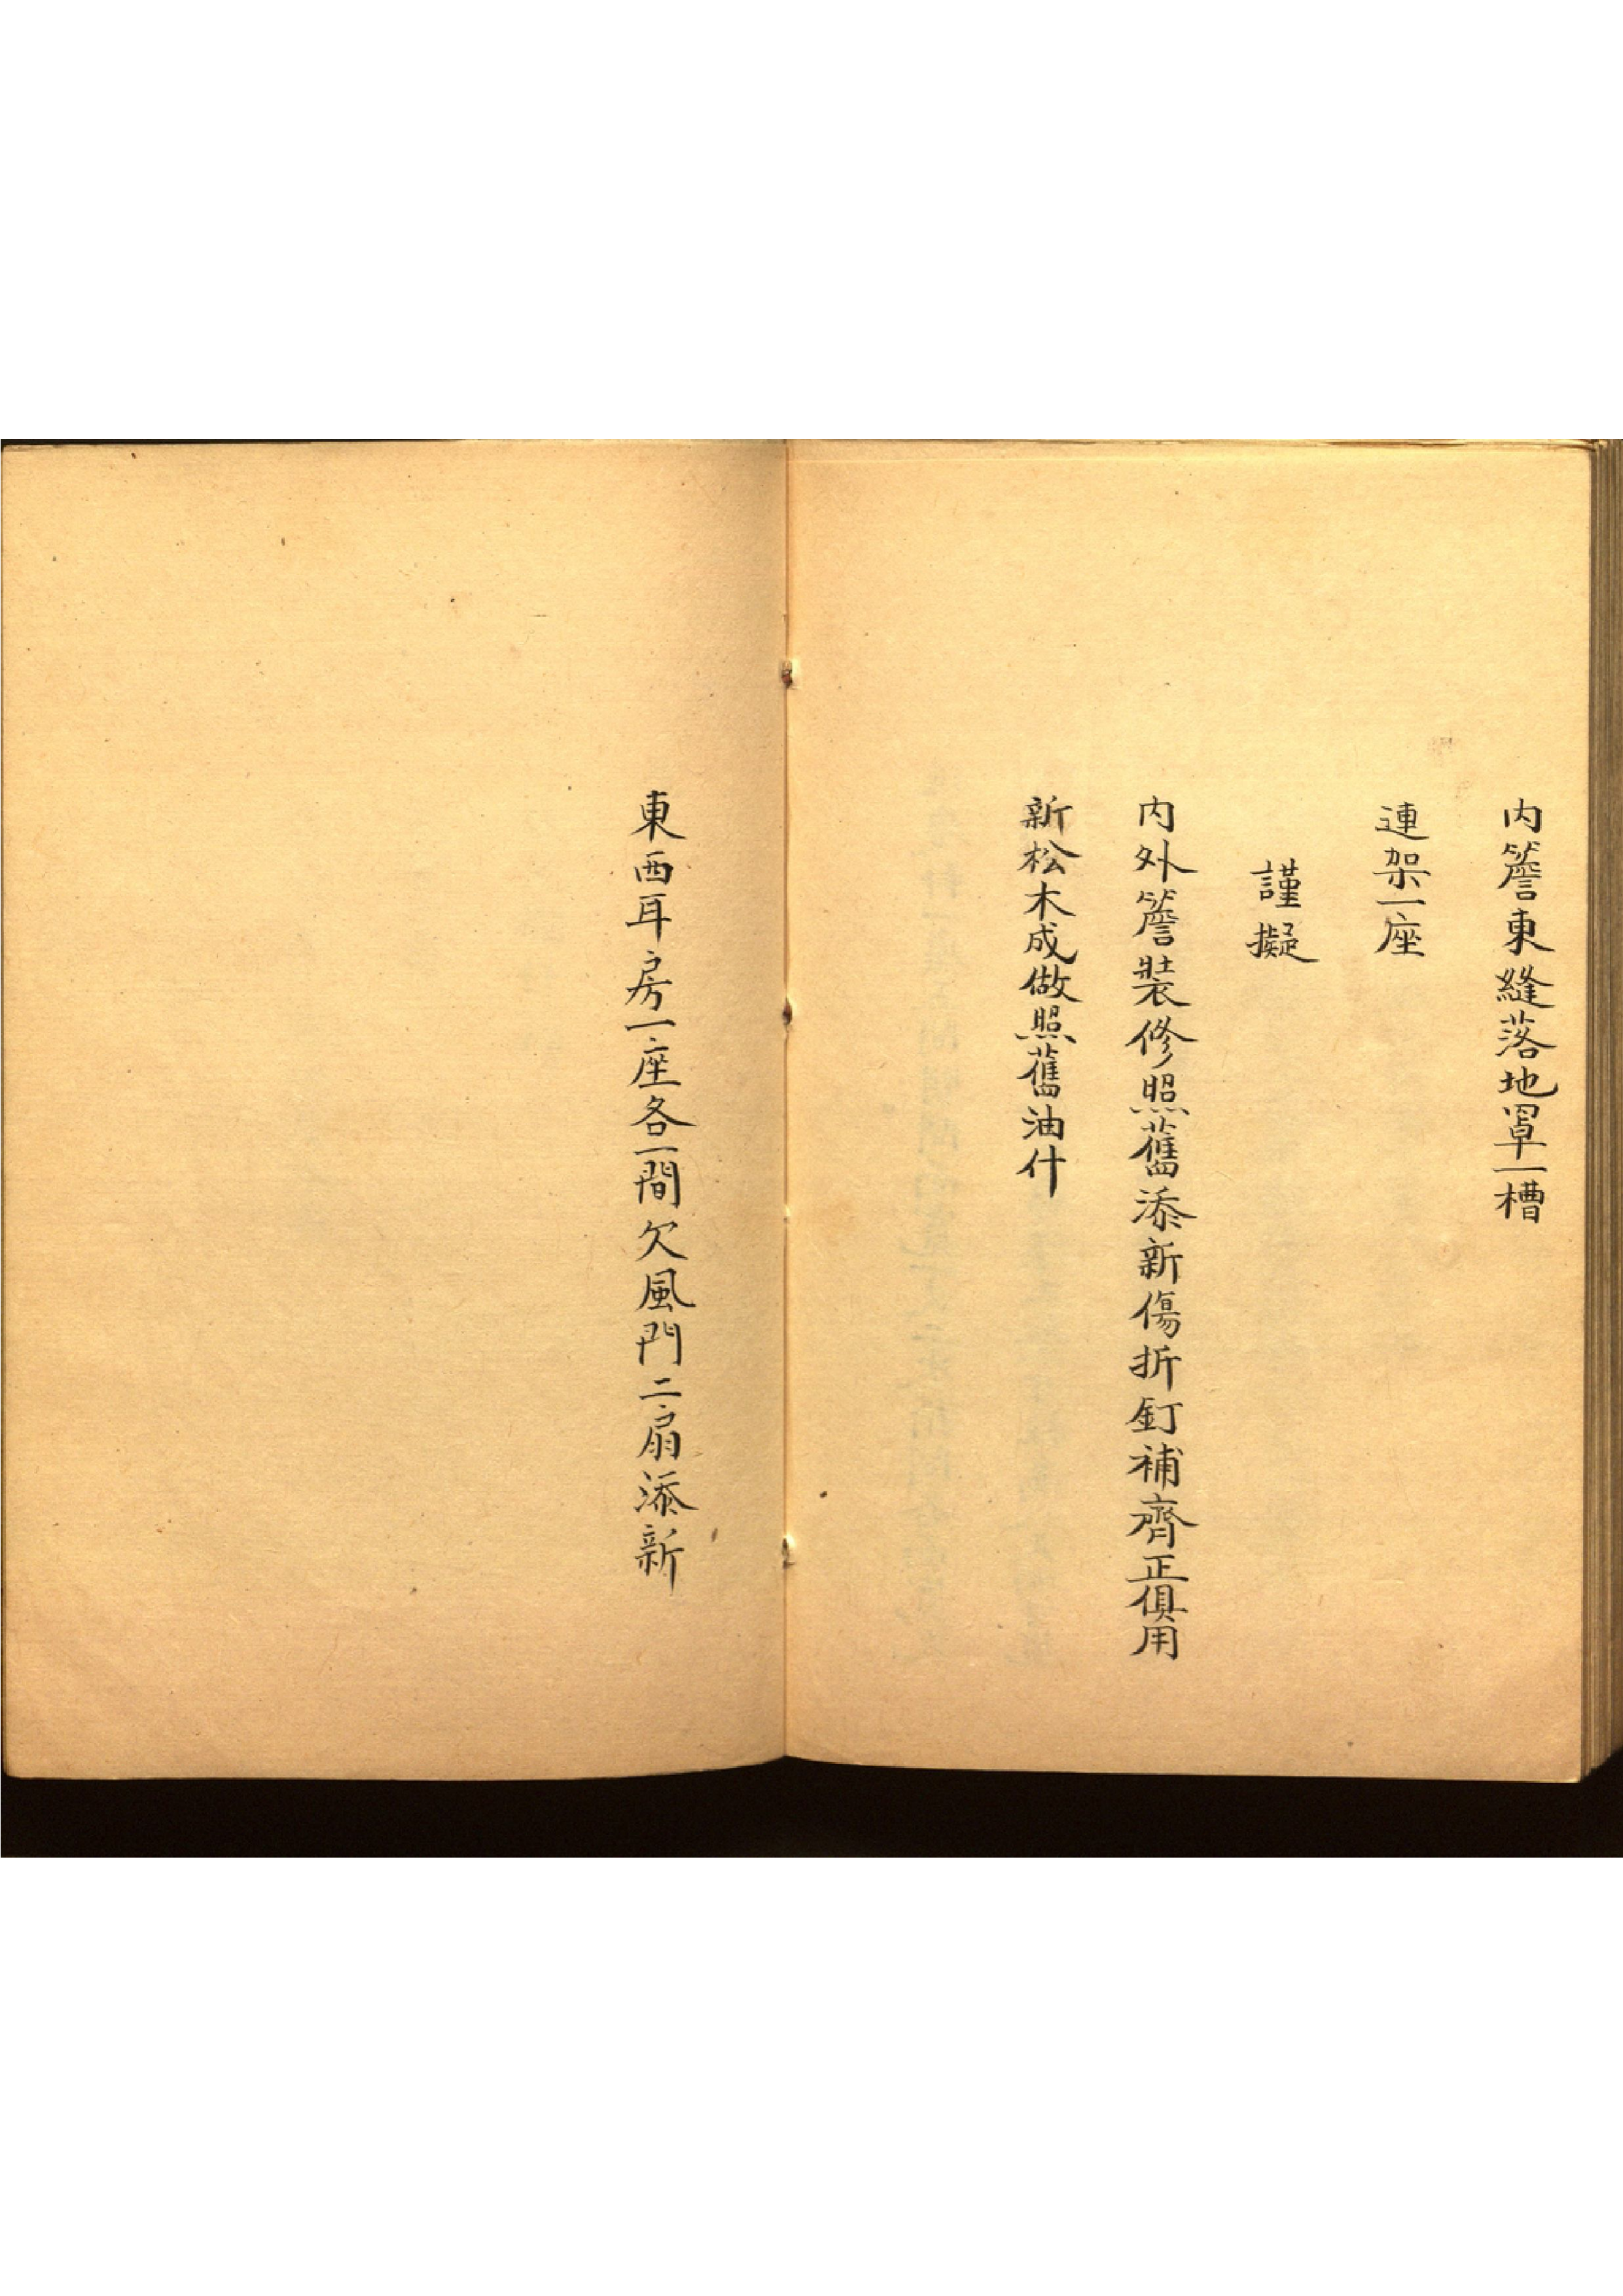 內簷東縫落地罩一槽
連架一座
謹擬
內外簷裝修照舊添新傷折釘補齊正俱用
新松木成做照舊油什
東西耳房一座各一間欠風門二扇添新